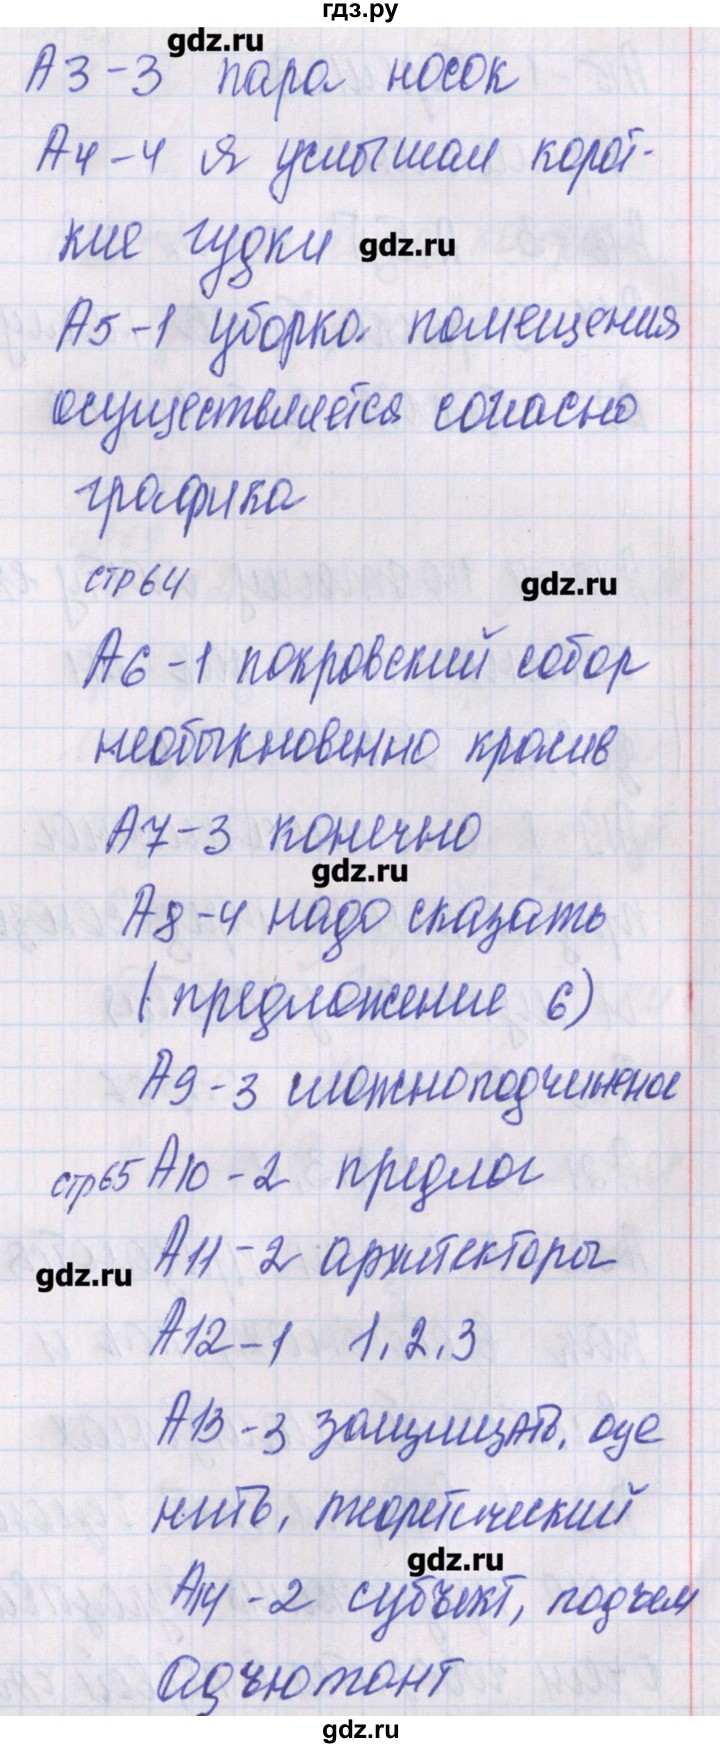 гдз.ру
gdz.ru
А3-3 пара носок
А4-4 я услышал корот-
кие гудки
gdz.ru
А5-1 уборка помещения
осуществляется согласно
графика
стр 64
gdz.ru
А6-1 покровский собор
необыкновенно красив
А7-3 конечно
gdz.ru
А8-4 надо сказать
(предложение 6)
А9-3 сложноподчиненное
стр 65 А10-2 предлог
А11-2 архитекторы
gdz.ru
А12-1 1,2,3
А13-3 защищать, оце
нить, теоретический
gdz.ru
А14-2 субъект, подъем
адъютант
gdz.ru